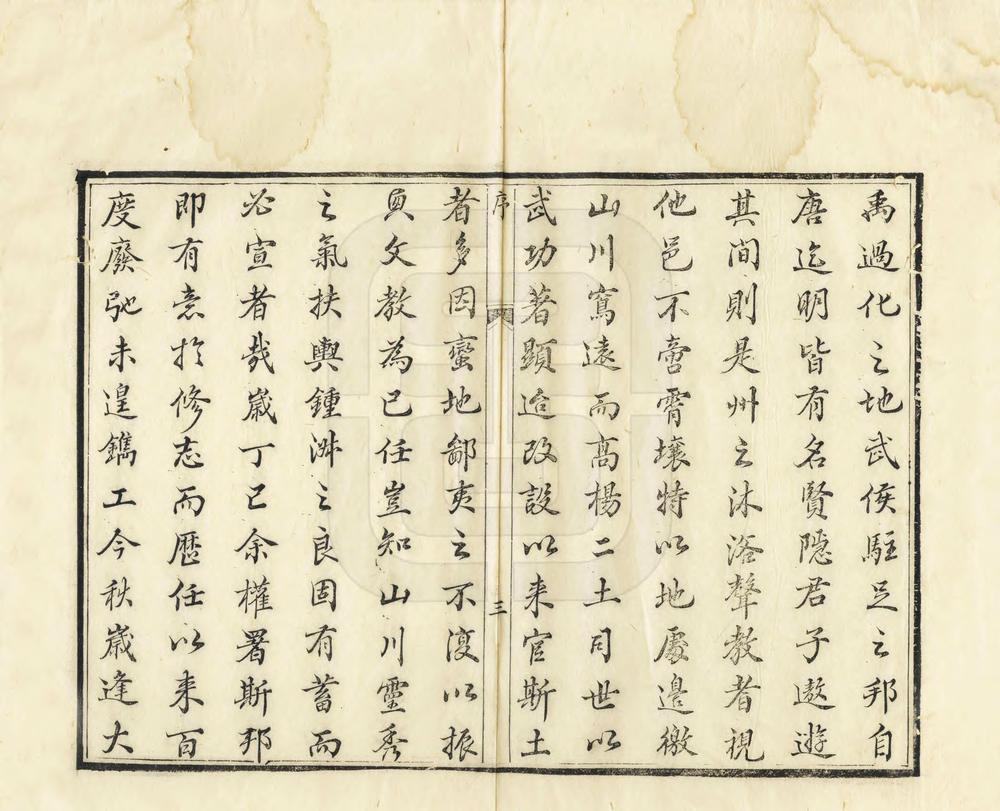 禹過化之地武侯駐足之邦自
唐迄明皆有名賢隱君子遨遊
其間則是州之沐浴聲教者視
他邑不啻霄壤特以地處邊徼
山川寫遠而高楊二土司世以
武功著顯迨改設以来官斯土
序
三
者多因蠻地鄙夷之不復以振
興文教為己任豈知山川靈秀
之氣扶輿鍾淑之良固有蓄而
必宣者哉歲丁巳余權署斯邦
即有意於修志而歷任以来百
度廢弛未遑鐫工今秋歲逢大